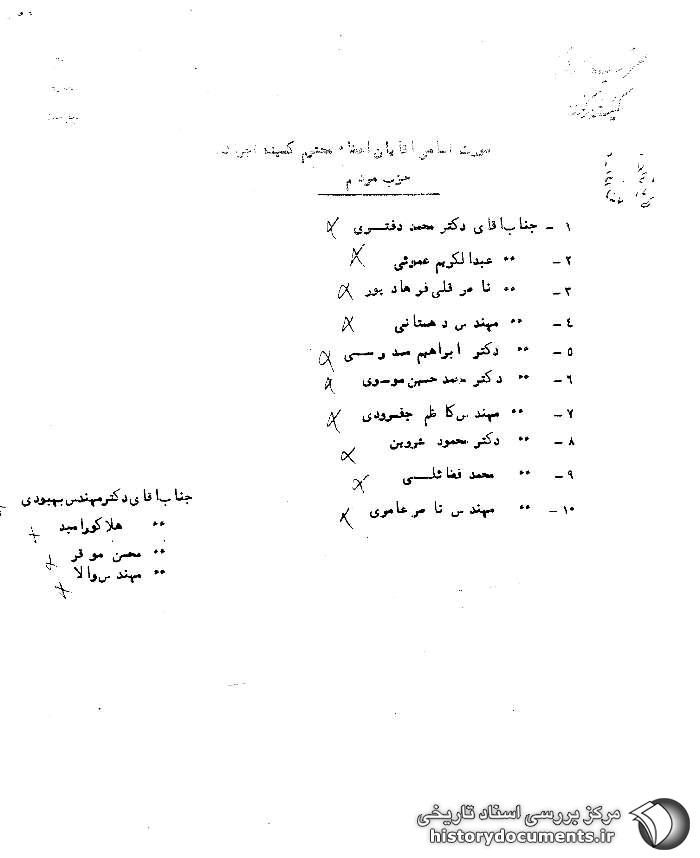 حزب
کمیته مرکزی
صورت اسامی آقایان اعضاء محترم کمیته
حزب مردم
۱ - جناب اقای دکتر محمد دفتـــری
۲ - " عبدالکریم عموئی
۳ - " ناصر قلی فرهاد پور
٤ - " مهندس دهستانی
۵ - " دکتر ابراهیم سدوســـی
۶ - " دکتر محمد حسین موسوی
۷ - " مهندس کاظم جفرودی
۸ - " دکتر محمود شروین
۹ - " محمد فضائلـــی
۱۰ - " مهندس ناصر عاموی
جناب اقای دکتر مهندس بهبودی
" هلاکو رامبد
" محسن موقر
" مهندس والا
مرکز بررسی اسناد تاریخی
historydocuments.ir